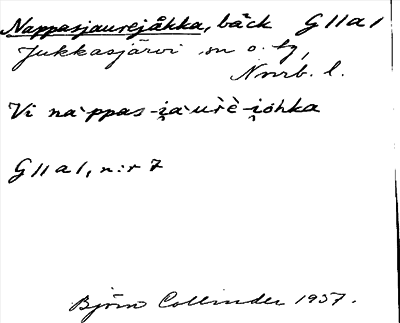 Nappasjaurejåkka, bäck G 11 a 1
Jukkasjärvi sn o. tg,
Nnrb. l.
Vi na`ppas-i̯a`urè-i̯òhka
G 11 a 1, n:r 7
Björn Collinder 1937.